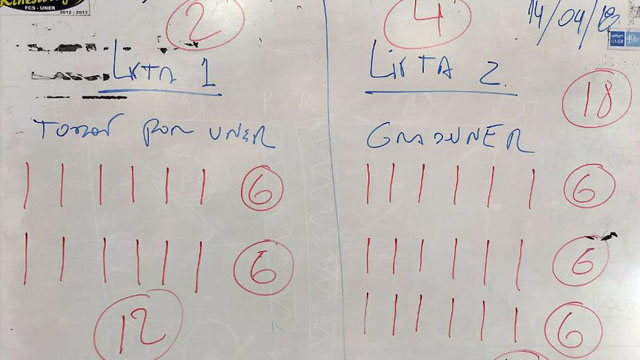 FCS - UNER
2012 - 2013
2
4
14/04/
LISTA 1
LISTA 2.
18
TODOS POR UNER
GRADUNER
| | | | | | 6
| | | | | | 6
| | | | | | 6
| | | | | | 6
| | | | | | 6
12